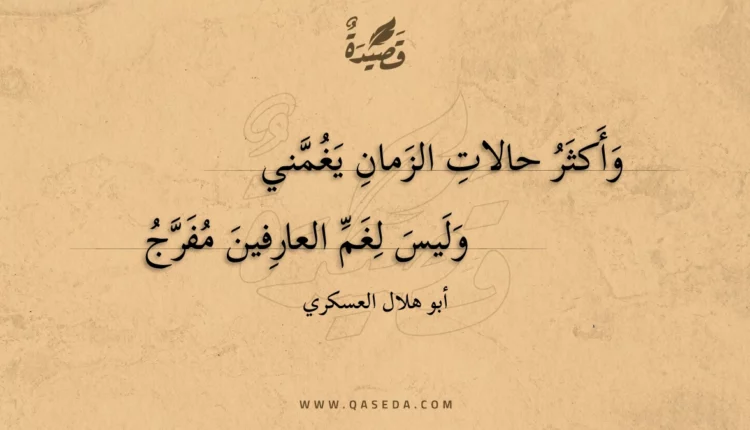 قَصِيْدَةٌ
وَأَكثَرُ حالاتِ الزَمانِ يَغُمَّني
وَلَيسَ لِغَمِّ العارِفينَ مُفَرَّجُ
أبو هلال العسكري
WWW.QASEDA.COM